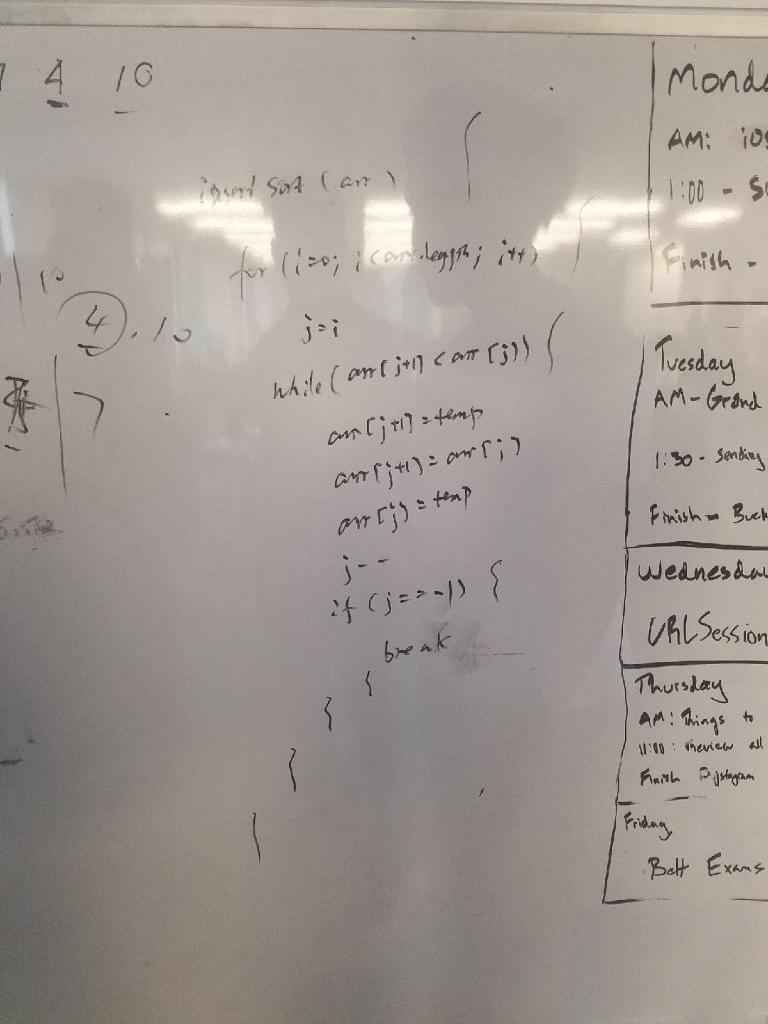 4 10
insert sort (arr) {
for (i=0; i<arr.length; i++) {
j=i
while (arr[j+1] < arr[j]) {
arr[j+1] = temp
arr[j+1] = arr[j]
arr[j] = temp
j--
if (j==-1) {
break
}
}
}
}
10
4, 10
7
Monda
AM: iOS
1:00 -
Finish -
Tuesday
AM - Grand
1:30 - Sending
Finish - Buck
Wednesday
URLSession
Thursday
AM: Things to
11:00: review all
Finish
Friday
Belt Exams